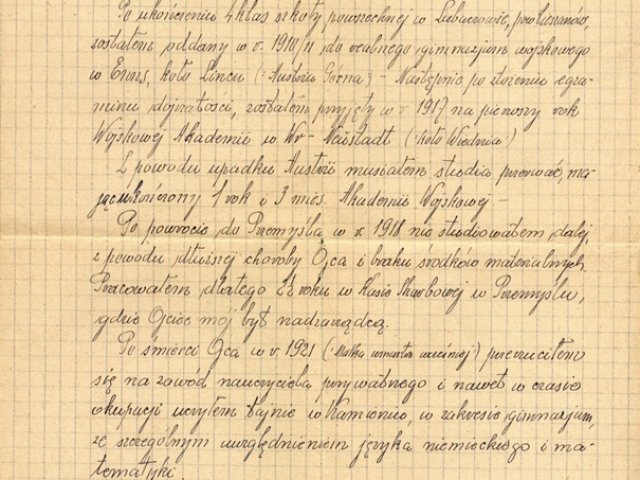 Po ukończeniu 4 klas szkoły powszechnej w
zostałem oddany w r. 1910/11 do realnego gimnazjum wojskowego
w Enns, koło Lińcu (: Austria Górna) – Następnie po złożeniu egza-
minu dojrzałości, zostałem przyjęty w r. 1917 na pierwszy rok
Wojskowej Akademii w Wr – Neustadt (: koło Wiednia)
Z powodu upadku Austrii musiałem studia przerwać, ma-
jąc ukończony 1 rok i 3 mies. Akademii Wojskowej –
Po powrocie do Przemyśla w r. 1918 nie studiowałem dalej
z powodu dłuższej choroby Ojca i braku środków materialnych.
Pracowałem dlatego roku w Kasie Skarbowej w Przemyślu,
gdzie Ojciec mój był nadzarządcą.
Po śmierci Ojca w r. 1921 (: Matka zmarła wcześniej) przerzuciłem
się na zawód nauczyciela prywatnego i nawet w czasie
okupacji uczyłem tajnie w Kamieniu, w zakresie gimnazjum,
ze szczególnym uwzględnieniem języka niemieckiego i ma-
tematyki.